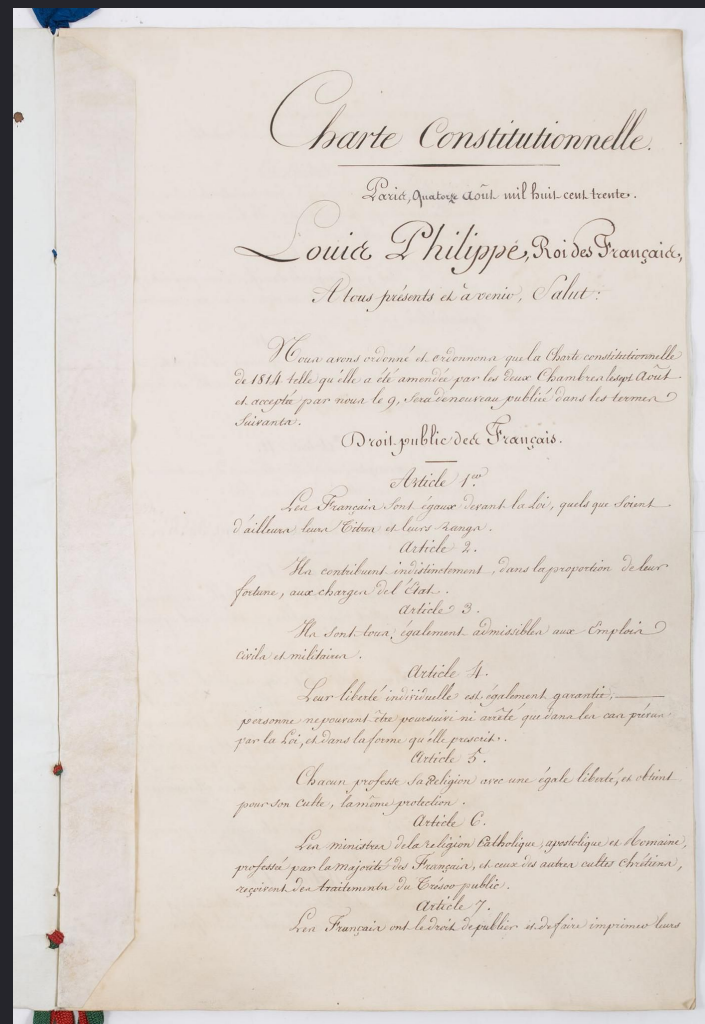 Charte Constitutionnelle.
Paris, quatorze Août mil huit cent trente.
Louis Philippe, Roi des Français,
A tous présents et à venir, Salut:
Nous avons ordonné et ordonnons que la Charte constitutionnelle
de 1814 telle qu'elle a été amendée par les deux Chambres le sept Août
et acceptée par nous le 9, sera de nouveau publiée dans les termes
suivants.
Droit public des Français.
Article 1er.
Les Français sont égaux devant la Loi, quels que soient
d'ailleurs leurs Titres et leurs rangs.
Article 2.
Ils contribuent indistinctement, dans la proportion de leur
fortune, aux charges de l'État.
Article 3.
Ils sont tous également admissibles aux Emplois
civils et militaires.
Article 4.
Leur liberté individuelle est également garantie;
personne ne pouvant être poursuivi ni arrêté que dans les cas prévus
par la Loi, et dans la forme qu'elle prescrit.
Article 5.
Chacun professe sa Religion avec une égale liberté, et obtient
pour son culte, la même protection.
Article 6.
Les ministres de la religion Catholique, apostolique et Romaine,
professée par la majorité des Français, et ceux des autres cultes chrétiens,
reçoivent des traitements du Trésor public.
Article 7.
Les Français ont le droit de publier et de faire imprimer leurs